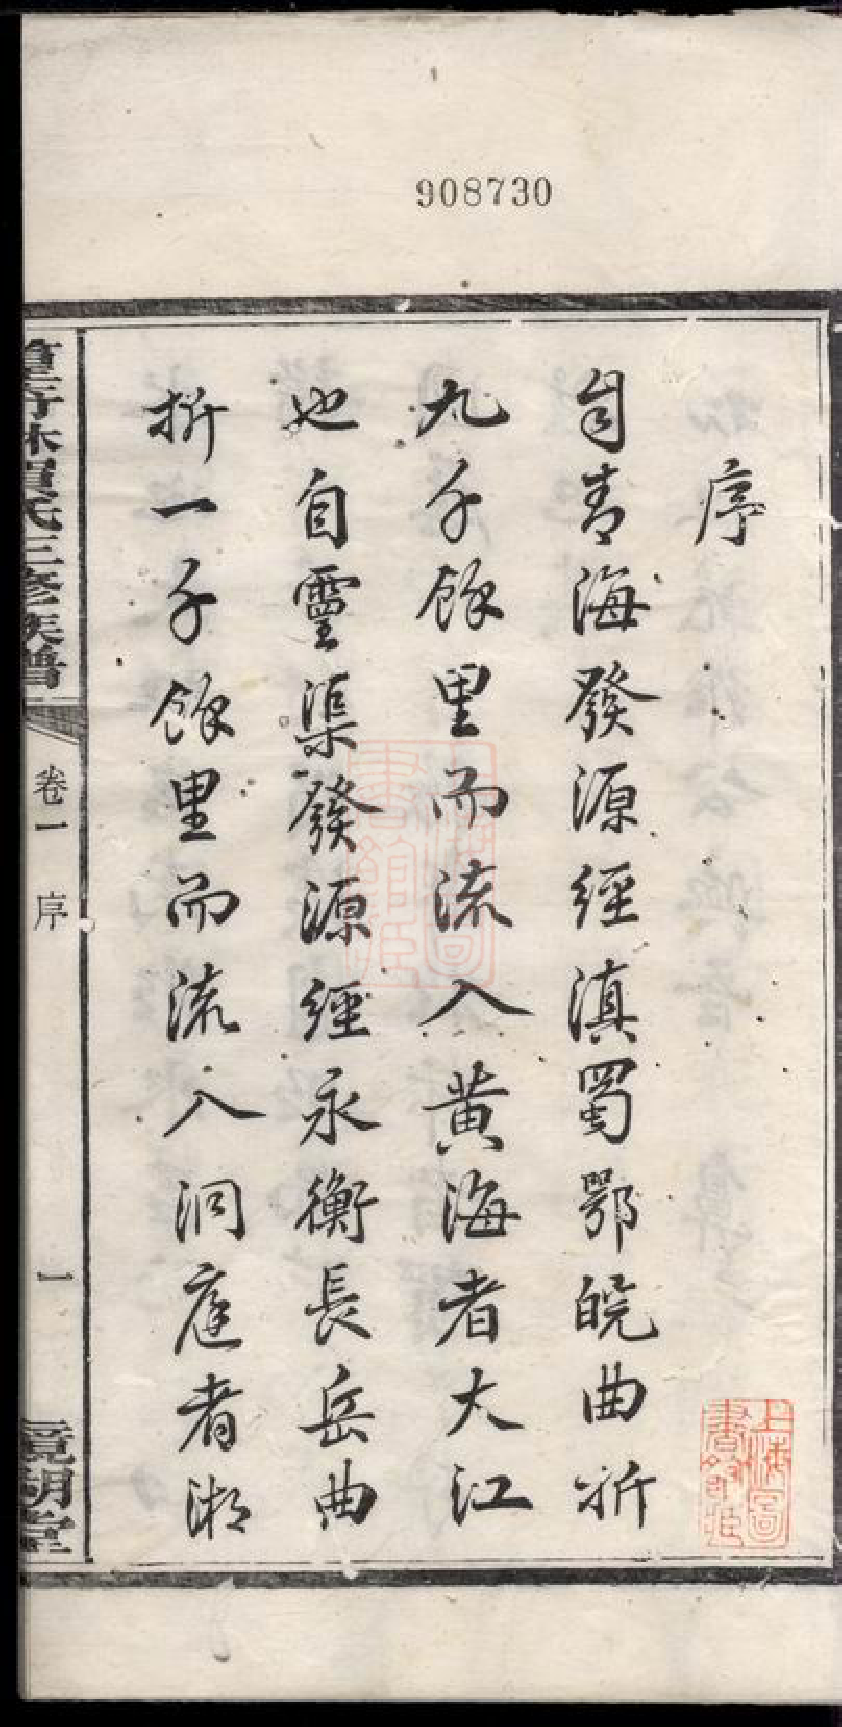 908730
序
自青海發源經滇蜀鄂皖曲折
九千餘里而流入黃海者大江
也自靈渠發源經永衡長岳曲
折一千餘里而流入洞庭者湘
氏三修族譜
卷一
序
一
鏡湖堂
上海圖
書館藏